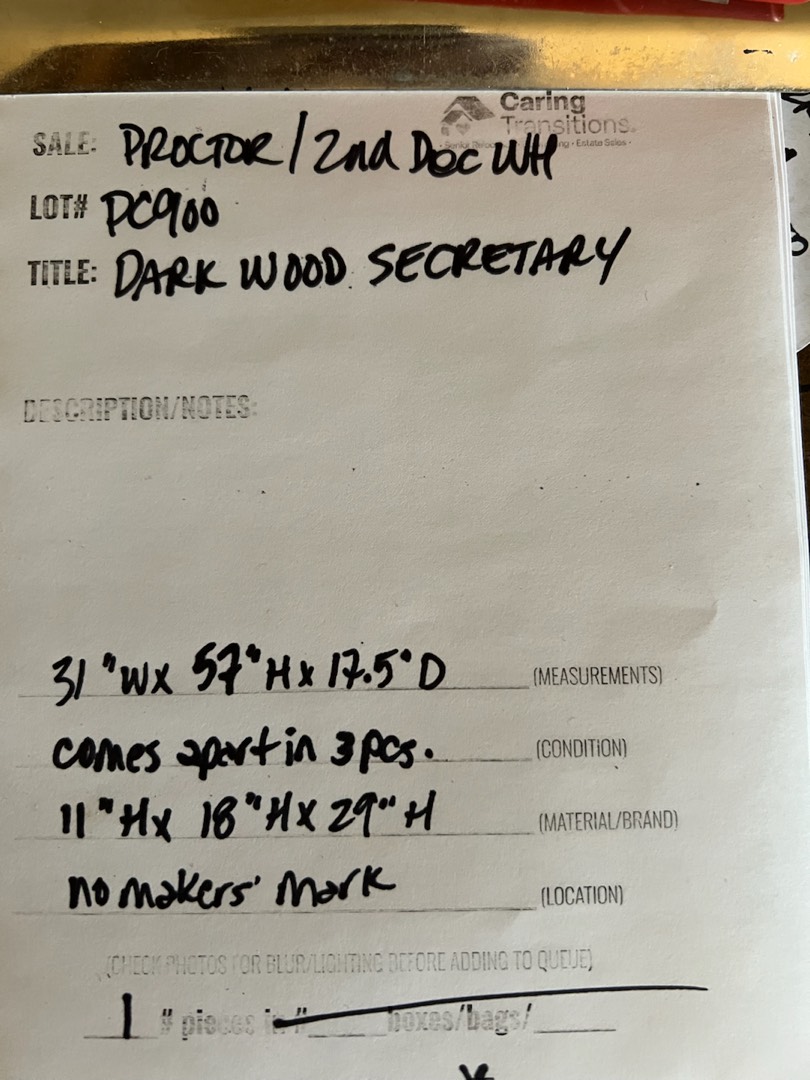 Caring
Transitions.
- Estate Sales -
SALE: PROCTOR / 2nd Dec WH
LOT# PC900
TITLE: DARK WOOD SECRETARY
DESCRIPTION/NOTES:
31"W x 57"H x 17.5"D (MEASUREMENTS)
comes apart in 3 pcs. (CONDITION)
11"H x 18"H x 29"H (MATERIAL/BRAND)
no makers' mark (LOCATION)
(CHECK PHOTOS FOR BLUR/LIGHTING BEFORE ADDING TO QUEUE)
1 # pieces in #____ boxes/bags/____